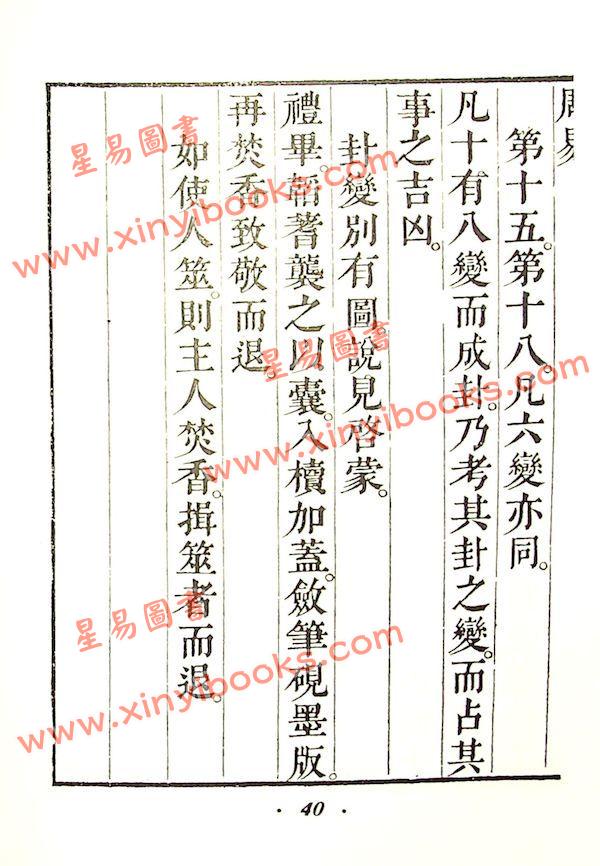 周易
第十五。第十八。凡六變亦同。
凡十有八變而成卦。乃考其卦之變。而占其
事之吉凶。
卦變別有圖。說見啓蒙。
禮畢。韜蓍襲之以囊。入櫝加蓋。斂筆硯墨版。
再焚香致敬而退。
如使人筮。則主人焚香。揖筮者而退。
· 40 ·
星易圖書
www.xinyibooks.com
星易圖書
www.xinyibooks.com
星易圖書
www.xinyibooks.com